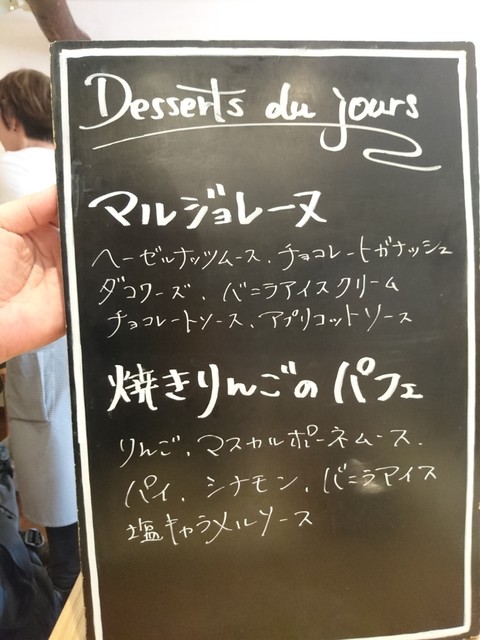 Desserts du jours
マルジョレーヌ
ヘーゼルナッツムース、チョコレートガナッシュ
ダコワーズ、バニラアイスクリーム
チョコレートソース、アプリコットソース
焼きりんごのパフェ
りんご、マスカルポーネムース、
パイ、シナモン、バニラアイス
塩キャラメルソース